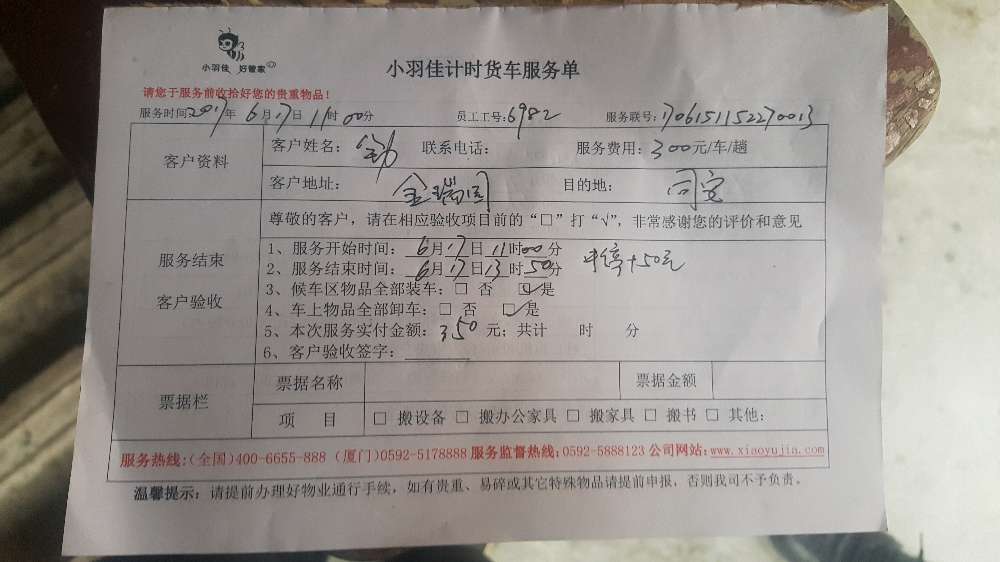 小羽佳 好管家
小羽佳计时货车服务单
请您于服务前收拾好您的贵重物品！
服务时间2017年 6月17日 11时00分 员工工号:6982 服务联号:1706151152270013
客户资料
客户姓名: 联系电话: 服务费用: 300元/车/趟
客户地址: 金瑞园 目的地: 同安
服务结束
客户验收
尊敬的客户，请在相应验收项目前的“□”打“√”，非常感谢您的评价和意见
1、服务开始时间: 6月17日11时00分
2、服务结束时间: 6月17日13时50分 中停+50元
3、候车区物品全部装车: □ 否 ☑是
4、车上物品全部卸车: □ 否 ☑是
5、本次服务实付金额: 350 元; 共计 时 分
6、客户验收签字:
票据栏
票据名称 票据金额
项 目 □ 搬设备 □ 搬办公家具 □ 搬家具 □ 搬书 □ 其他:
服务热线:(全国)400-6655-888 (厦门)0592-5178888 服务监督热线:0592-5888123 公司网站:www.xiaoyujia.com
温馨提示: 请提前办理好物业通行手续，如有贵重、易碎或其它特殊物品请提前申报，否则我司不予负责。